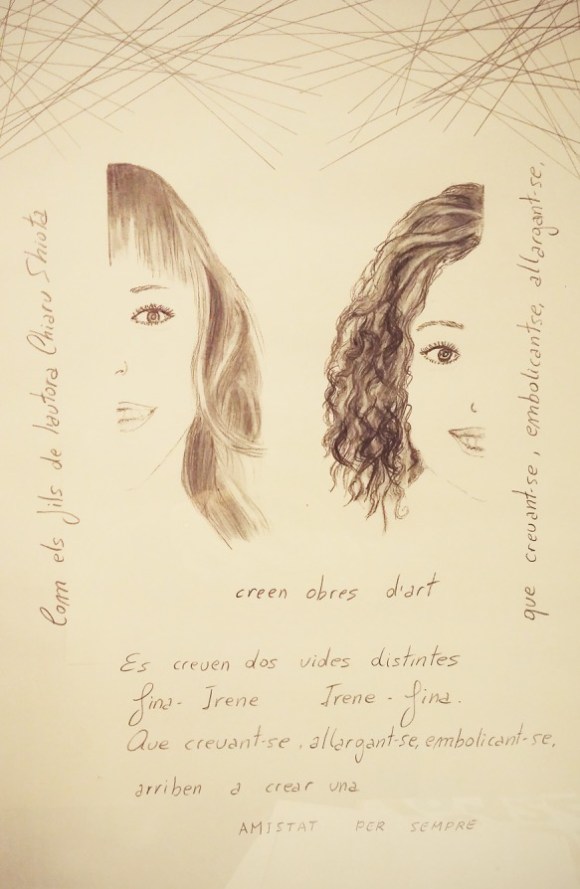 Com els fils de l'autora Chiaru Shiota
que creuant-se, embolicantse, allargant-se,
creen obres d'art
Es creuen dos vides distintes
Fina- Irene Irene - Fina.
Que creuant-se, allargant-se, embolicant-se,
arriben a crear una
AMISTAT PER SEMPRE